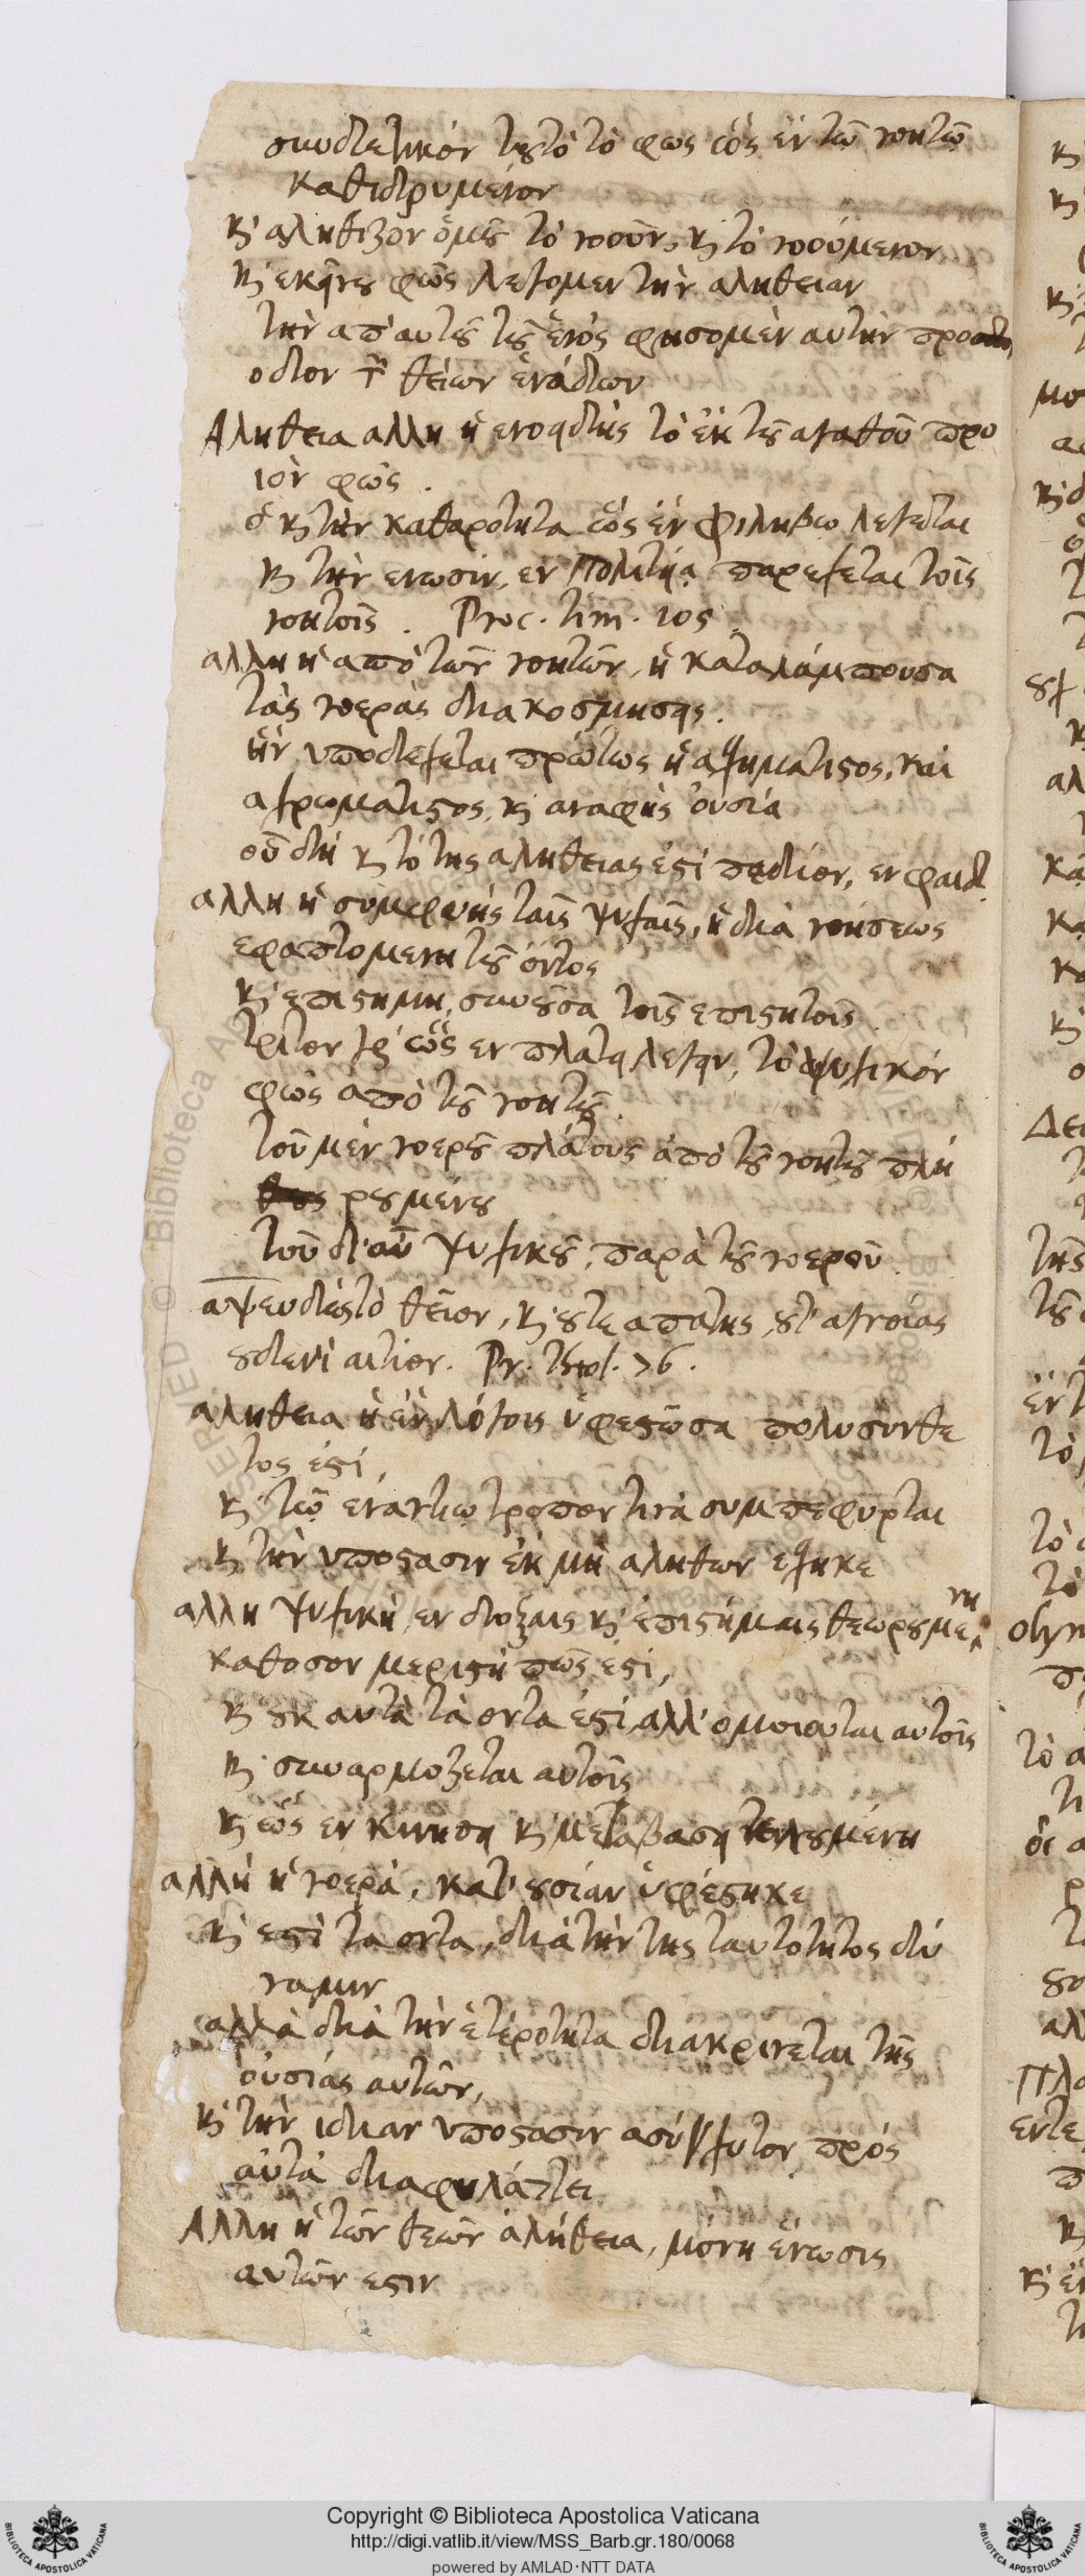 συνδετικόν τουτὸ τὸ φως ὡς ἐν τῷ νοητῷ
καθιδρυμένον
κ' αληθιζον ὁμοῦ τὸ νοοῦν, κ τὸ νοούμενον
κ' εκεινου φῶς λεγομεν τὴν αλήθειαν
τὴν απ' αυτοῦ τοῦ ἑνὸς φησομὲν αυτὴν προο
οδιον τ̃ θείων ἑνάδων
Αληθεια αλλη ἡ ενοειδης τὸ ἐκ τοῦ αγαθοῦ προ
ιὸν φῶς.
ὁ κ τὴν καθαροτητα ὡς ἐν Φιληβω λεγεται
κ τὴν ενωσιν, εν Πολιτεία παρεχεται τοῖς
νοητοῖς. Proc. tim. 105.
αλλη ἡ ἀπὸ τῶν νοητῶν, ἡ καταλάμπουσα
τὰς νοερὰς διακοσμησεις.
ἣν υποδεχεται πρώτως ἡ ασχηματιστος, καὶ
αχρωματιστος, κ αναφὴς ουσία
οὗ δὴ κ τὸ της αληθειας ἐστὶ πεδίον, εν φαιδ.
αλλη ἡ συμφυὴς ταῖς ψυχαῖς, ἡ διὰ νοησεως
εφαπτομενη τοῦ όντος
κ' επιστημη, συνουσα τοῖς επιστητοῖς
τριτον γ' ὡς εν πλατει λεγειν, τὸ ψυχικόν
φῶς ἀπὸ τοῦ νοητοῦ.
τοῦ μὲν νοεροῦ πλάτους ἀπὸ τοῦ νοητοῦ πλη
ρουμένου
τοῦ δ' αὖ ψυχικοῦ, παρὰ τοῦ νοεροῦ.
αψευδὲς τὸ θεῖον, κ' ουτε απατης, ουτ' αγνοίας
ουδενὶ αιτιον. Pr. Theol. 76.
αληθεια ἡ ἐν λόγοις ὑφεστῶσα πολυσύνθε
τος ἐστί,
κ' τῷ εναντιω τροπον τινὰ συμπεφυρται
κ τὴν υποστασιν ἐκ μὴ αληθων εσχηκε
αλλη ψυχικὴ, εν δοξαις κ' ἐπιστήμαις θεωρουμενη
καθοσον μεριστὴ πῶς εστι,
κ ουκ αυτὰ τὰ οντα ἐστὶ, αλλ' ομοιουται αυτοῖς
κ' συναρμοζεται αυτοῖς
κ ὡς εν κινησει κ' μεταβασει τελουμένη
αλλὴ ἡ νοερὰ, κατ' ουσίαν ὑφέστηκε
κ' εστὶ τα οντα, διὰ τὴν της ταυτότητος δύ
ναμιν
αλλὰ διὰ τὴν ἑτερότητα διακρινεται τῆς
οὐσίας αυτῶν,
κ' τὴν ιδιαν υποστασιν ασύγχυτον πρός
αὐτὰ διαφυλάττει
Αλλη ἡ τῶν θεῶν ἀλήθεια, μόνη ἕνωσις
αυτῶν εστιν
Copyright © Biblioteca Apostolica Vaticana
http://digi.vatlib.it/view/MSS_Barb.gr.180/0068
powered by AMLAD·NTT DATA